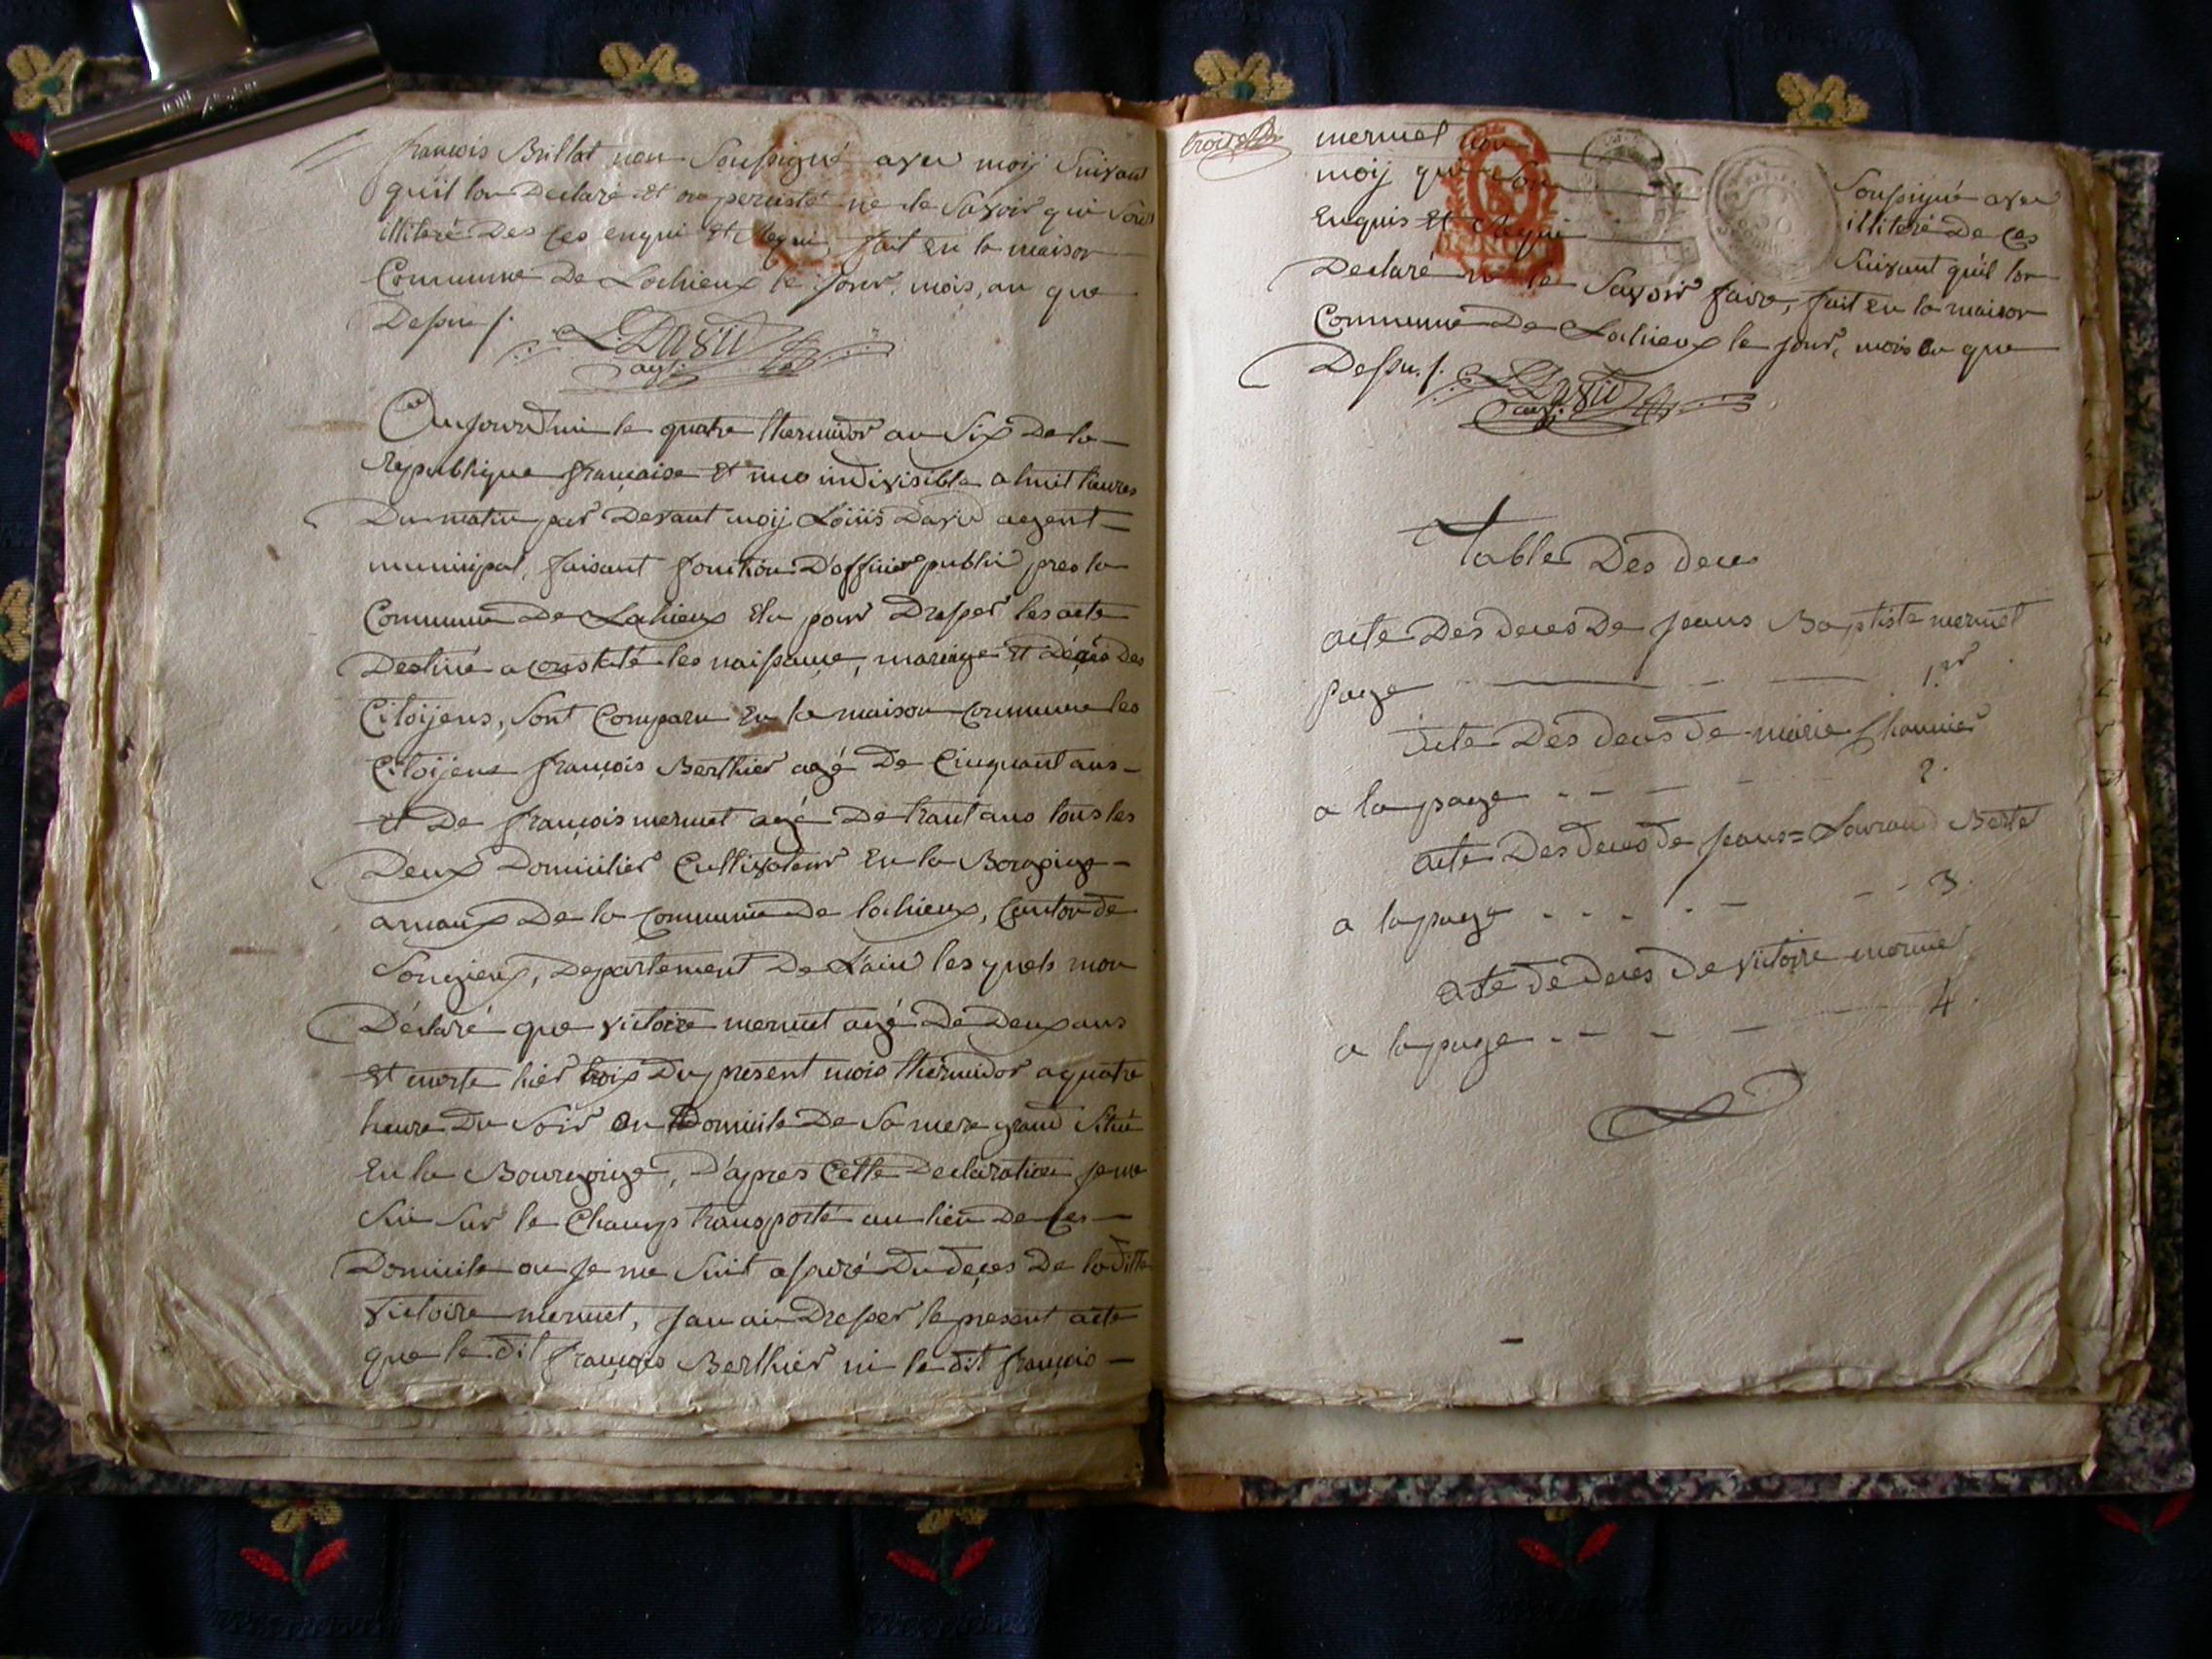 françois Brillat non Soussigné avec moij Suivant
qu'il lon Declaré et on persisté ne le Savoir qui Son
illiteré Des Ces enqui et Requi, fait en la maison
Commune De Lochieux le jour, mois, an que
Dessus /.
L. David
agt.
Aujourd'hui le quatre thermidor an Six De la
republique française et une indivisible a huit heures
Du matin par Devant moij Loüis David agent
municipal, faisant fonction D'officier public pres la
Commune De Lochieux Elu pour Dresser les acte
Destiné a constaté les naissance, mariage et Décès Des
Citoijens, Sont Comparu En la maison commune les
Citoijens françois Berthier agé De Cinquant ans
et De françois mermet agé De trant ans tous les
Deux Domicilier Cultivateur En la Bourgoige
arnaux De la Commune De lochieux, Canton de
Songieux, Departement De L'ain les quels mon
Déclaré que victoire mermet agé De Deux ans
et morte hier trois Du present mois thermidor a quatre
heure Du Soir au Domicile De Sa mere grand Situé
En la Bourgoige, D'apres Cette Declaration je me
Sui Sur le Champ transporté au lieu De Ces
Domicile ou je me Suit assuré Du deçes De la ditte
victoire mermet, jan ai Dresser le present acte
que le dit françois Berthier ni le dit françois
trois
mermet non Soussigné avec
moij qui Son illiteré De Ces
Enquis et Requi Suivant qu'il lon
Declaré ne le Savoir faire, fait en la maison
Commune De Lochieux le jour, mois an que
Dessu. /.
L. David
agt.
Table Des deces
acte Des deces De jeans Baptiste mermet
page 1.er
acte Des deces de marie
a la page 2.
acte Des deces de jeans = Lauraud
a la page 3.
acte de deces de victoire mermet
a la page 4.